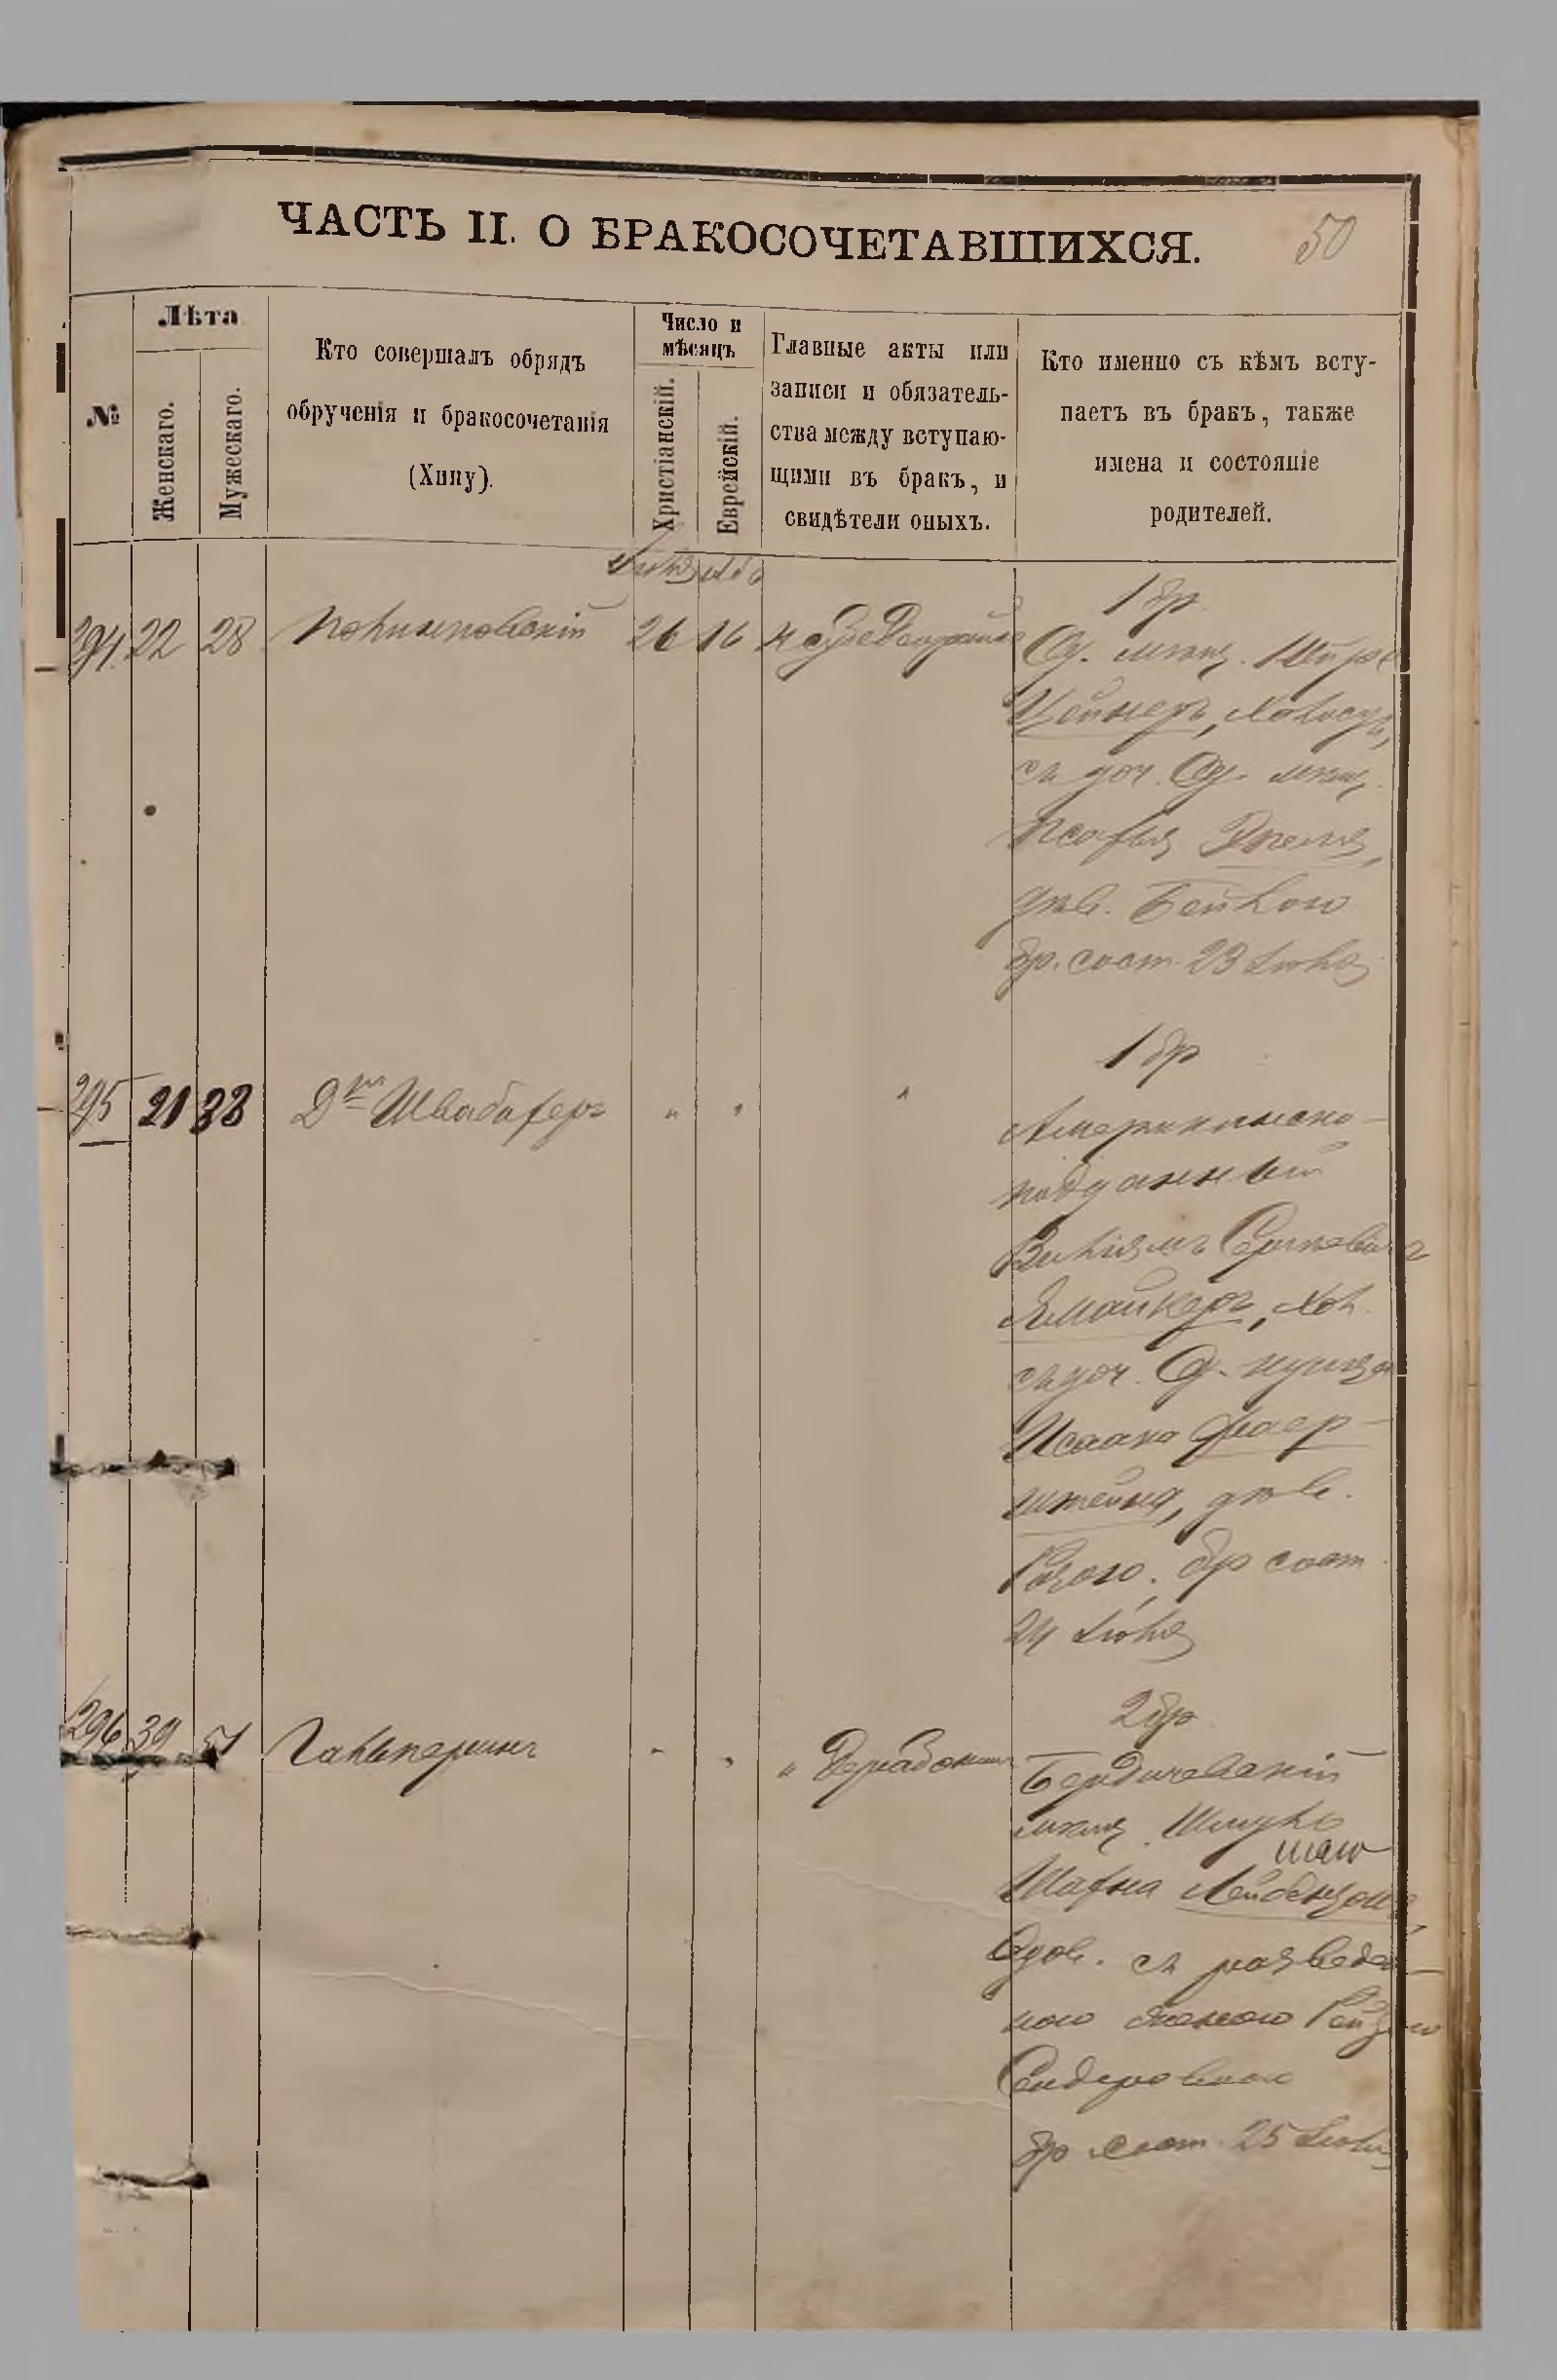 ЧАСТЬ II. О БРАКОСОЧЕТАВШИХСЯ.
50
№
Лѣта
Женскаго.
Мужескаго.
Кто совершалъ обрядъ
обрученія и бракосочетанія
(Хипу).
Число и
мѣсяцъ
Христіанскій.
Еврейскій.
Главные акты или
записи и обязатель-
ства между вступаю-
щими въ бракъ, и
свидѣтели оныхъ.
Кто именно съ кѣмъ всту-
паетъ въ бракъ, также
имена и состояніе
родителей.
Іюля
294 22 28 Полинковскій 26 16
1 бр.
Од. мѣщ.
Цейнеръ, холост,
съ доч. Од. мѣщ.
дѣв. Бейлою
бр. сост. 23 Іюля
295 21 38 Д-ръ Швабахеръ " " "
1 бр
Американско-
подданный
Вильямъ
Ямайкеръ, хол.
съ доч. Од. купца
Исаака Фаер-
штейна, дѣв.
Розою. бр сост.
24 Іюля
296 39 51 Гальперинъ " " "
2 бр.
Бердичевскій
мѣщ. Шмуль
Шахна Лейбензонъ,
вдов. съ разведен-
ною женою
бр сост. 25 Іюля